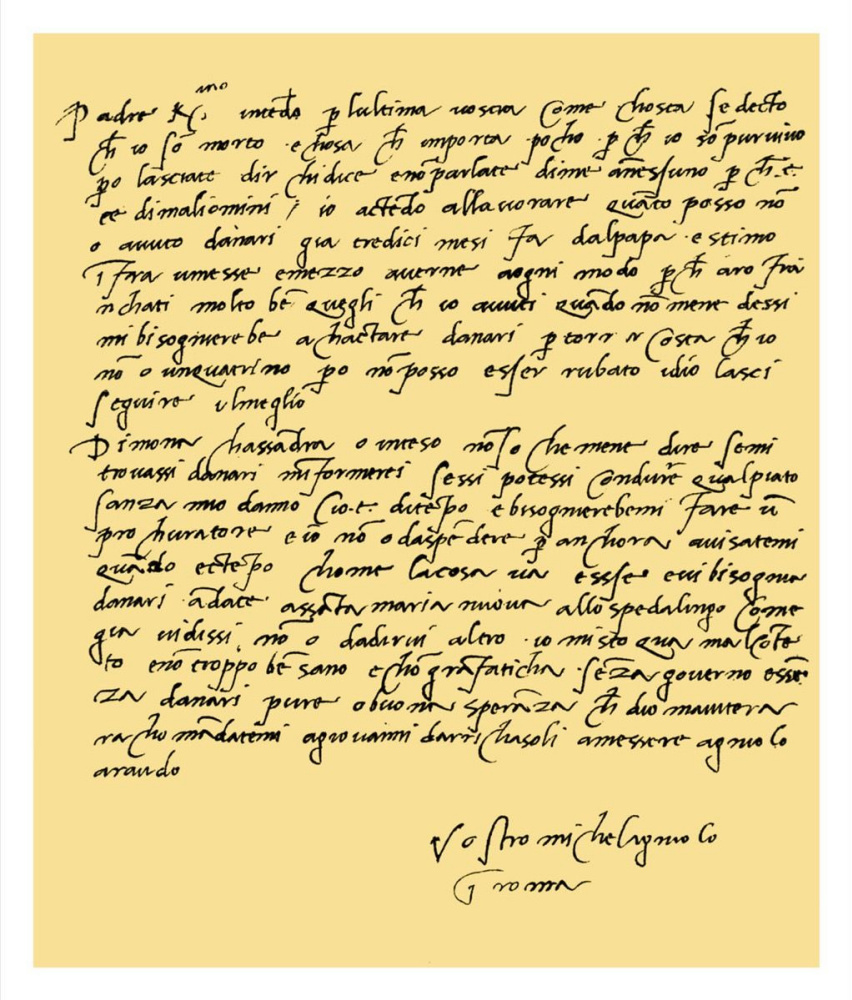 Padre Kmo intēdo p lultima vostra Come chosta sedecto
ch io sō morto · e chosa ch importa pocho · p ch io sō purvivo
po lasciate dir chidice enōparlate dime anessuno p ch e
ce dimaliomini / io actēdo allavorare quāto posso nō
o avuto danari gia tredici mesi fa dalpapa · e stimo
īfra umesse emezzo averne aogni modo p ch aro frā
nchati molto bē quegli ch io avuti quādo nō mene dessi
mi bisognierebe a chactare danari p tornar Costa ch io
nō o unquatrino po nō posso esser rubato idio lasci
seguire ilmeglio
Dimona chassādra o inteso nō so che mene dire semi
trovassi danari mīformerei sessi potessi Condure qualpiato
sanza mio danno Cio·e· ditēpo e bisognierebemi fare ū
prochuratore e io nō o daspēdere p anchora avisatemi
quādo ectēpo chome lacosa va essse evi bisognia
danari ādate assātamaria nuova allospedalingo Come
gia vidissi nō o dadirvi altro · io misto qua malCōtē
to enō troppo bē sano e chō grāfaticha sēzagoverno essē
za danari pure o buona sperāza ch dio maiutera
rachomādatemi agiovanni darrichasoli amessere agniolo
araudo
Vostro michelagniolo
ī roma